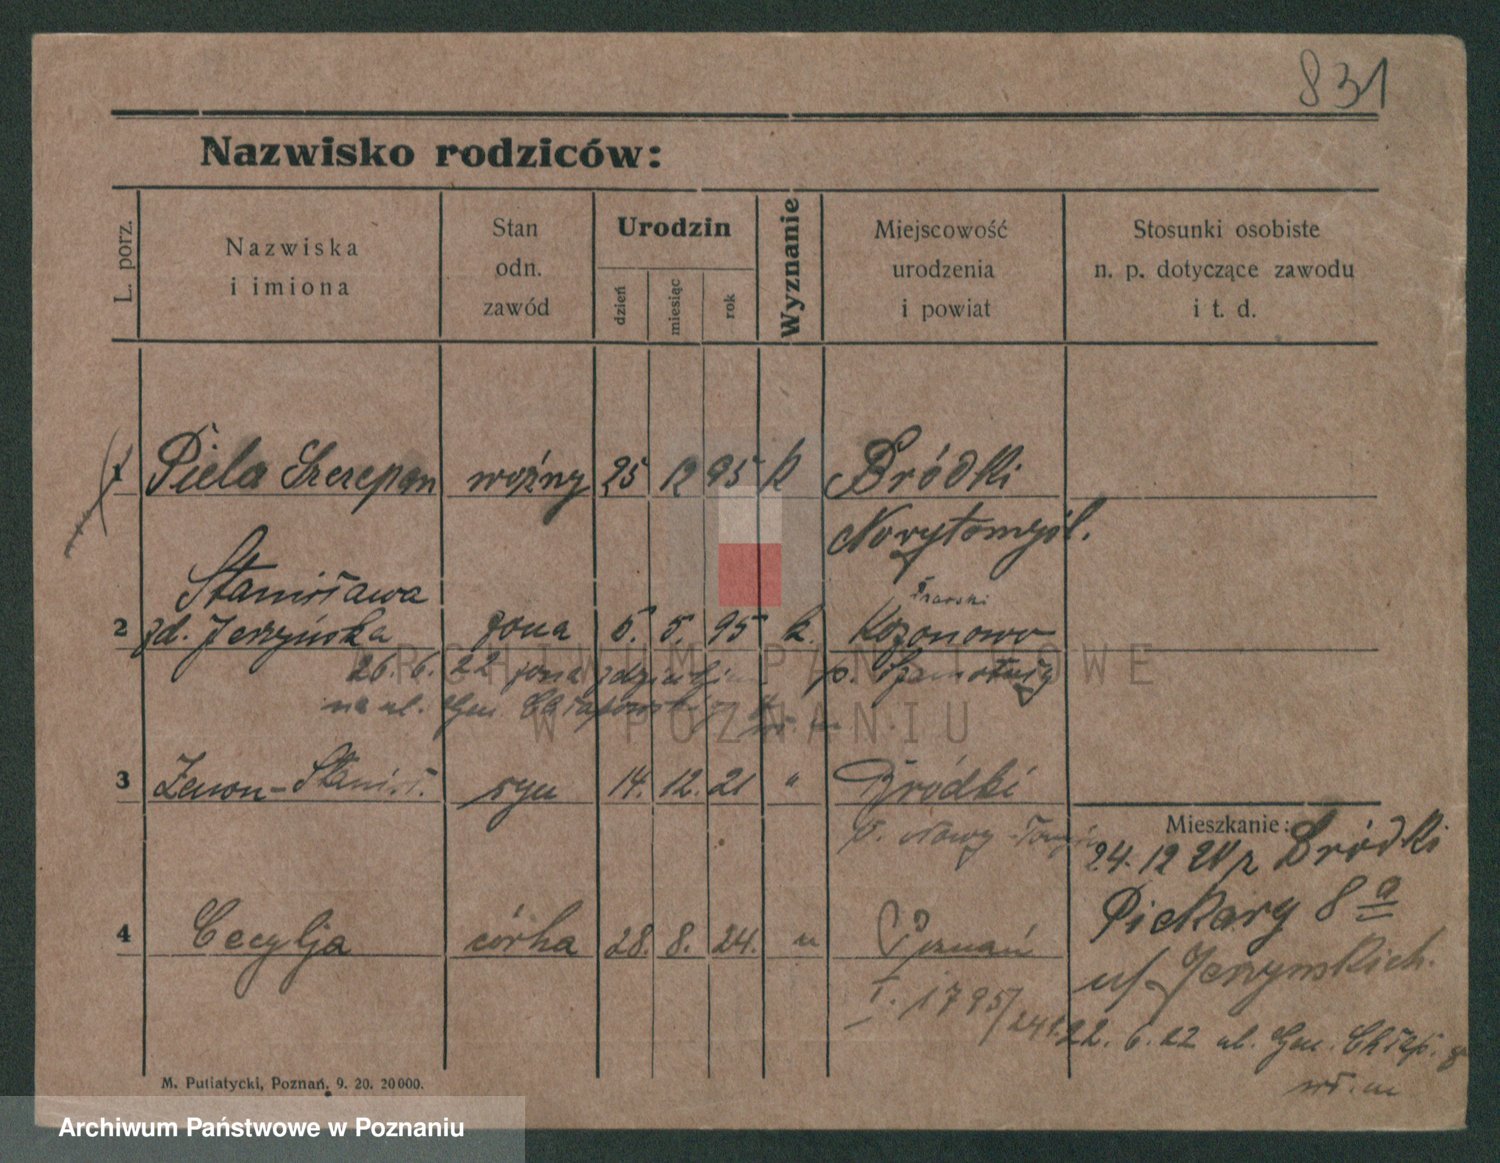 831
Nazwisko rodziców:
L. porz.
Nazwiska
i imiona
Stan
odn.
zawód
Urodzin
dzień
miesiąc
rok
Wyznanie
Miejscowość
urodzenia
i powiat
Stosunki osobiste
n. p. dotyczące zawodu
i t. d.
1 Piela Szczepan woźny 25 12 95 k Bródki
Nowytomyśl.
Stanisława
2 zd. Jerzyńska żona 5. 5. 95 k. Kozonowo
26. 6. 22 żona p. Szamotuły
na ul. Gen. Chłapowsk
3 Zenon-Stanisł. syn 14. 12. 21 " Bródki
p. Nowy-Tomyśl
4 Cecylja córka 28. 8. 24. " Poznań
I. 1795/24
Mieszkanie:
24. 12 21 z Bródki
Piekary 8 a
u/ Jerzyńskich.
22. 6. 22 ul. Gen. Chłap.
M. Putiatycki, Poznań, 9. 20. 20000.
ARCHIWUM PAŃSTWOWE
W POZNANIU
Archiwum Państwowe w Poznaniu